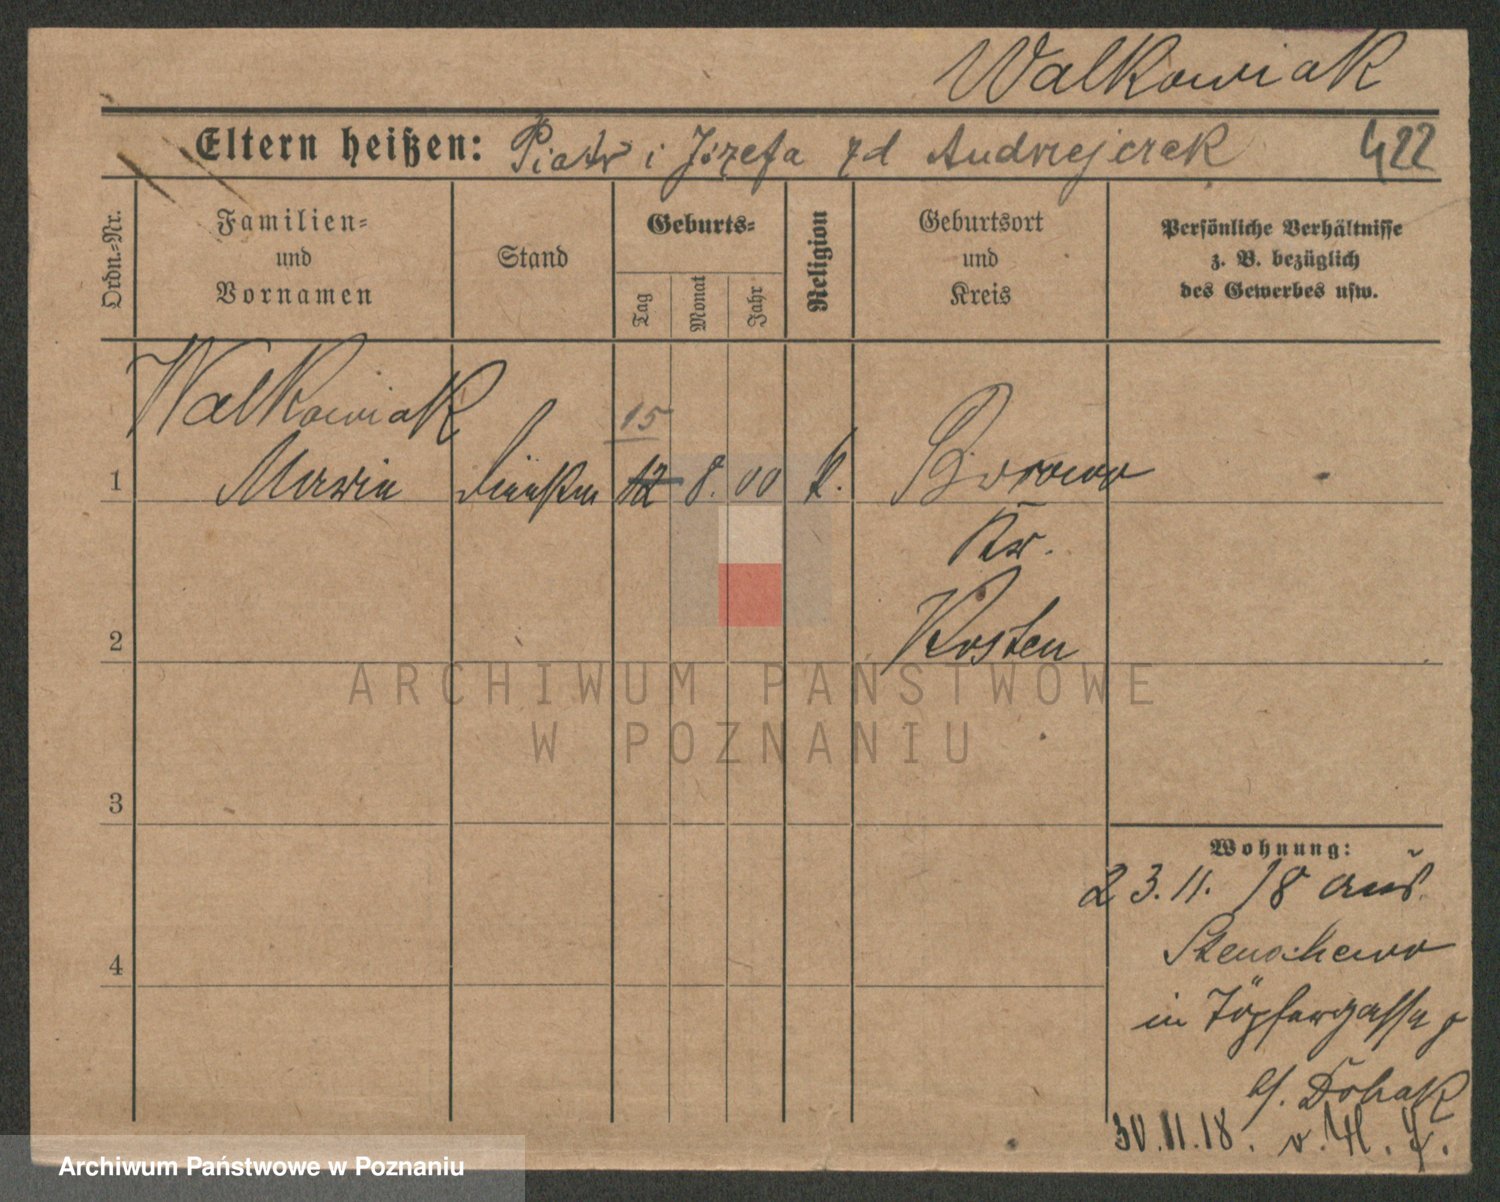 Walkowiak
Eltern heißen: Piotr i Józefa zd Andrzejczak 422
Ordn.-Nr.
Familien-
und
Vornamen
Stand
Geburts-
Tag
Monat
Jahr
Religion
Geburtsort
und
Kreis
Persönliche Verhältnisse
z. B. bezüglich
des Gewerbes usw.
Walkowiak
15
1 Marie 12 8. 00 k. Borowo
Kr.
Kosten
2
ARCHIWUM PAŃSTWOWE
W POZNANIU
3
Wohnung:
23.11. 18 aus
4
in Töpfergasse
30.11.18.
Archiwum Państwowe w Poznaniu